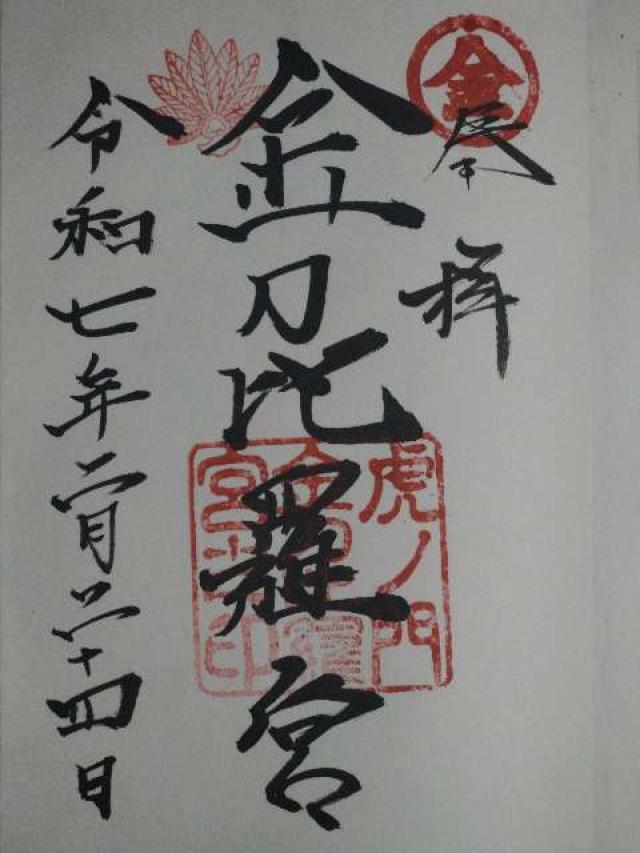 金
奉拝
金刀比羅宮
令和七年二月二十四日
虎ノ門
金
宮
印